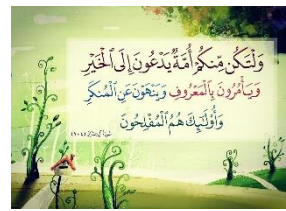 وَلْتَكُن مِّنكُمْ أُمَّةٌ يَدْعُونَ إِلَى الْخَيْرِ
وَيَأْمُرُونَ بِالْمَعْرُوفِ وَيَنْهَوْنَ عَنِ الْمُنكَرِ
وَأُوْلَٰئِكَ هُمُ الْمُفْلِحُونَ